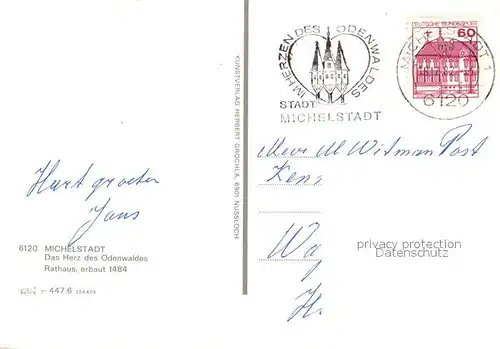 IM HERZEN DES ODENWALDES
STADT
MICHELSTADT
60
DEUTSCHE BUNDESPOST
MICHELSTADT 1
6120
KUNSTVERLAG HERBERT GROCHLA, 6901 NUSSLOCH
Hart groeten
Jans
6120 MICHELSTADT
Das Herz des Odenwaldes
Rathaus, erbaut 1484
447.6
Mevr M Witman Post
Ken
Wa
H
privacy protection
Datenschutz